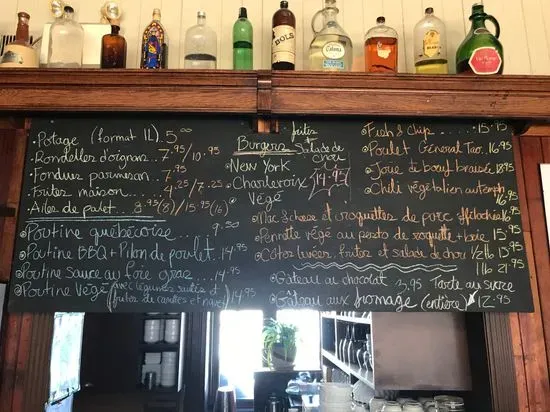 BOLS
• Potage (format 1L) 5.00
• Rondelles d'oignons... 7.95/10.95
• Fondues parmesan... 7.95
• Frites maison... 4.25/7.25
• Ailes de pulet.. 8.95(8)/15.95(16)
• Poutine québécoise... 9.50
• Poutine BBQ + Pilon de poulet. 14.95
• Poutine sauce au foie gras... 14.95
• Poutine Végé (avec légumes sautés et frites de carottes et navet) 14.95
Burgers frites + salade de chou
• New York
• Charlevoix 14.95
• Végé
• Mac & cheese et croquettes de porc effiloché 16.95
• Pennette végé au pesto de roquette + foie 15.95
• Côtes levées, frites et salade de chou 1/2 lb 15.95
1 lb 21.95
• Fish & Chip... 15.95
• Poulet Général Tao. 16.95
• Joue de bœuf braisée 18.95
• Chili végétalien
16.95
• Gâteau au chocolat 3.95 Tarte au sucre
• Gâteau aux fromage (entière) 12.95